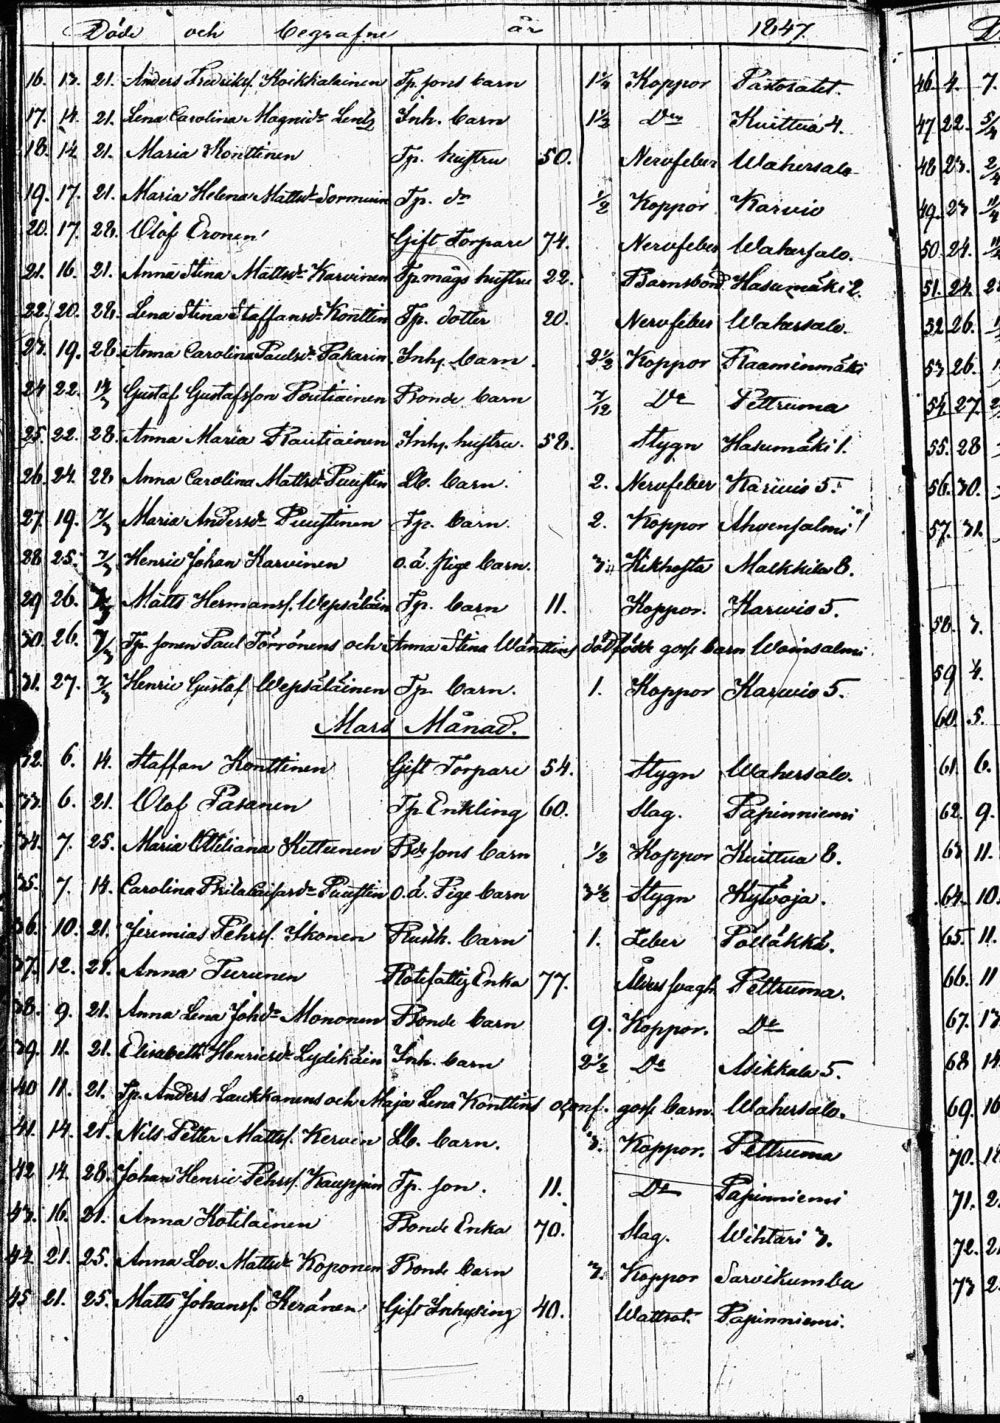 Döde och begrafne år 1847.
16. 13. 21. Anders Fredriksf. Koikkalainen Tp. sons barn 1½ Koppor Pastoratet.
17. 14. 21. Lena Carolina Magnid:r Inh. barn 1½ D:o Kuittua 4.
18. 14 21. Maria Konttinen Tp. hustru 50. Nervfeber Wahersalo
19. 17. 21. Maria Helena Mattsd:r Sormuin Tp. d:r ½ Koppor Karvio
20. 17. 28. Olof Oronen Gift Torpare 74. Nervfeber Wahersalo.
21. 16. 21. Anna Stina Mattsd:r Karvinen Tp. mågs hustru 22. Barnsbörd Hasumäki 2.
22. 20. 28. Lena Stina Staffansd:r Konttin Tp. dotter 20. Nervfeber Wahersalo.
23. 19. 28. Anna Carolina Paulsd:r Pakarin Inh. barn 2½ Koppor Kaaminmäki
24 22. 14/3 Gustaf Gustafsson Poutiainen Bonde barn 7/12 D:o Pettruma
25. 22. 28. Anna Maria Rautiainen Inh. hustru. 58. Stygn Hasumäki 1.
26. 24. 28. Anna Carolina Mattsd:r Puustin Lb. barn. 2. Nervfeber Karvio 5.
27. 19. 7/3 Maria Andersd:r Puustinen Tp. barn. 2. Koppor Ahvensalmi
28 25. 7/3 Henric Johan Karvinen o.ä. pige barn. 3. Kikhosta Malkkila 8.
29 26. 7/3 Matts Hermansf. Wepsäläin Tp. barn 11. Koppor. Karvio 5.
30. 26. 7/3 Tp. sonen Paul Törrönens och Anna Stina Wänttins dödfödt goss barn Wäinsalmi
31. 27. 7/3 Henric Gustaf Wepsäläinen Tp. barn. 1. Koppor Karvio 5.
Mars Månad.
32. 6. 14. Staffan Konttinen Gift Torpare 54. Stygn Wahersalo.
33. 6. 21. Olof Pasanen Tp. Enkling 60. Slag. Papinniemi
34. 7. 25. Maria Ottiliana Kettunen Bd:e sons barn ½ Koppor Kuittua 8.
35. 7. 14. Carolina Puustin o.ä. Pige barn 3½ Stygn Kytöoja.
36. 10. 21. Jeremias Pehrsf. Ikonen Rusth. barn 1. Feber Pölläkkä.
37. 12. 21. Anna Turunen Rotefattig Enka 77. Ålders svagh. Pettruma.
38. 9. 21. Anna Lena Johd:r Mononen Bonde barn 9. Koppor. D:o
39. 11. 21. Elisabeth Henricsd:r Lydikäin Inh. barn 2½ D:o Asikkala 5.
40 11. 21. Tp. Anders Laukkanens och Maja Lena Konttins goss barn. Wahersalo.
41. 14. 21. Nils Petter Mattsf. Kervin Lb. barn. 3. Koppor. Pettruma
42 14. 28. Johan Henric Pehrsf. Kauppin Tp. son. 11. D:o Papinniemi
43. 16. 21. Anna Kotilainen Bonde Enka 70. Slag. Wihtari 3.
44. 21. 25. Anna Lov. Mattsd:r Koponen Bonde barn 3. Koppor Sarvikumbu
45 21. 25. Matts Johansf. Keränen Gift Inhysing 40. Wattsot. Papinniemi.
46. 4. 7.
47 22. 5/4
48 23.
49. 23
50. 24.
51. 24.
52 26.
53 26.
54. 27.
55. 28
56. 30.
57. 31.
58. 3.
59 4.
60. 5.
61. 6.
62. 9.
63 11.
64. 10.
65. 11.
66. 11
67. 13
68 14.
69. 16
70. 18
71. 2
72. 21
73 2.